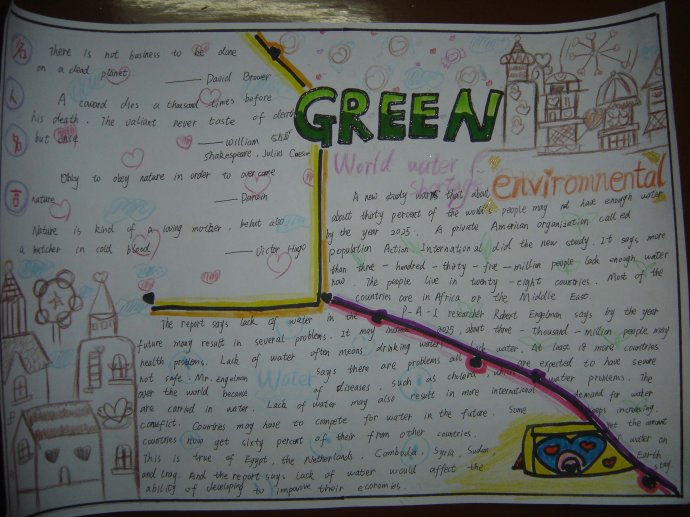 名
人
名
言
There is not business to be done
on a dead planet
—— David Brower
A coward dies a thousand times before
his death. The valiant never taste of death
but once
—— William
Shakespeare, Julius Caesar
Obly to obey nature in order to overcome
nature
—— Darwin
Nature is kind of a loving mother, but also
a butcher in cold blood
—— Victor Hugo
GREEN
World water
shortage
enviromnental
A new study warns that about
about thirty percent of the world's people may not have enough water
by the year 2025. A private American organization called
population Action International did the new study. It says more
than three - hundred - thirty - five - million people lack enough water
now. The people live in twenty - eight countries. Most of the
countries are in Africa or the Middle East.
P-A-I researcher Robert Engelman says by the year
2025, about three - thousand - million people may
lack water. At least 18 more countries
are expected to have severe
water problems. The
demand for water
keeps increasing.
the amount
water on
Earth
stay
The report says lack of water in the
future may result in several problems. It may
health problems. Lack of water often means drinking water
not safe. Mr. Engelman says there are problems all
over the world because of diseases, such as cholera, which
are carried in water. Lack of water may also result in more international
conflict. Countries may have to compete for water in the future. Some
countries now get sixty percent of their from other countries.
This is true of Egypt, the Netherlands, Cambodia, Syria, Sudan,
and Iraq. And the report says lack of water would affect the
ability of developing to improve their economies.
Water